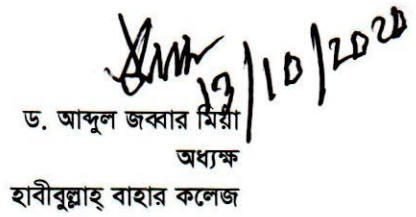 13/10/2020
ড. আব্দুল জব্বার মিয়া
অধ্যক্ষ
হাবীবুল্লাহ্ বাহার কলেজ